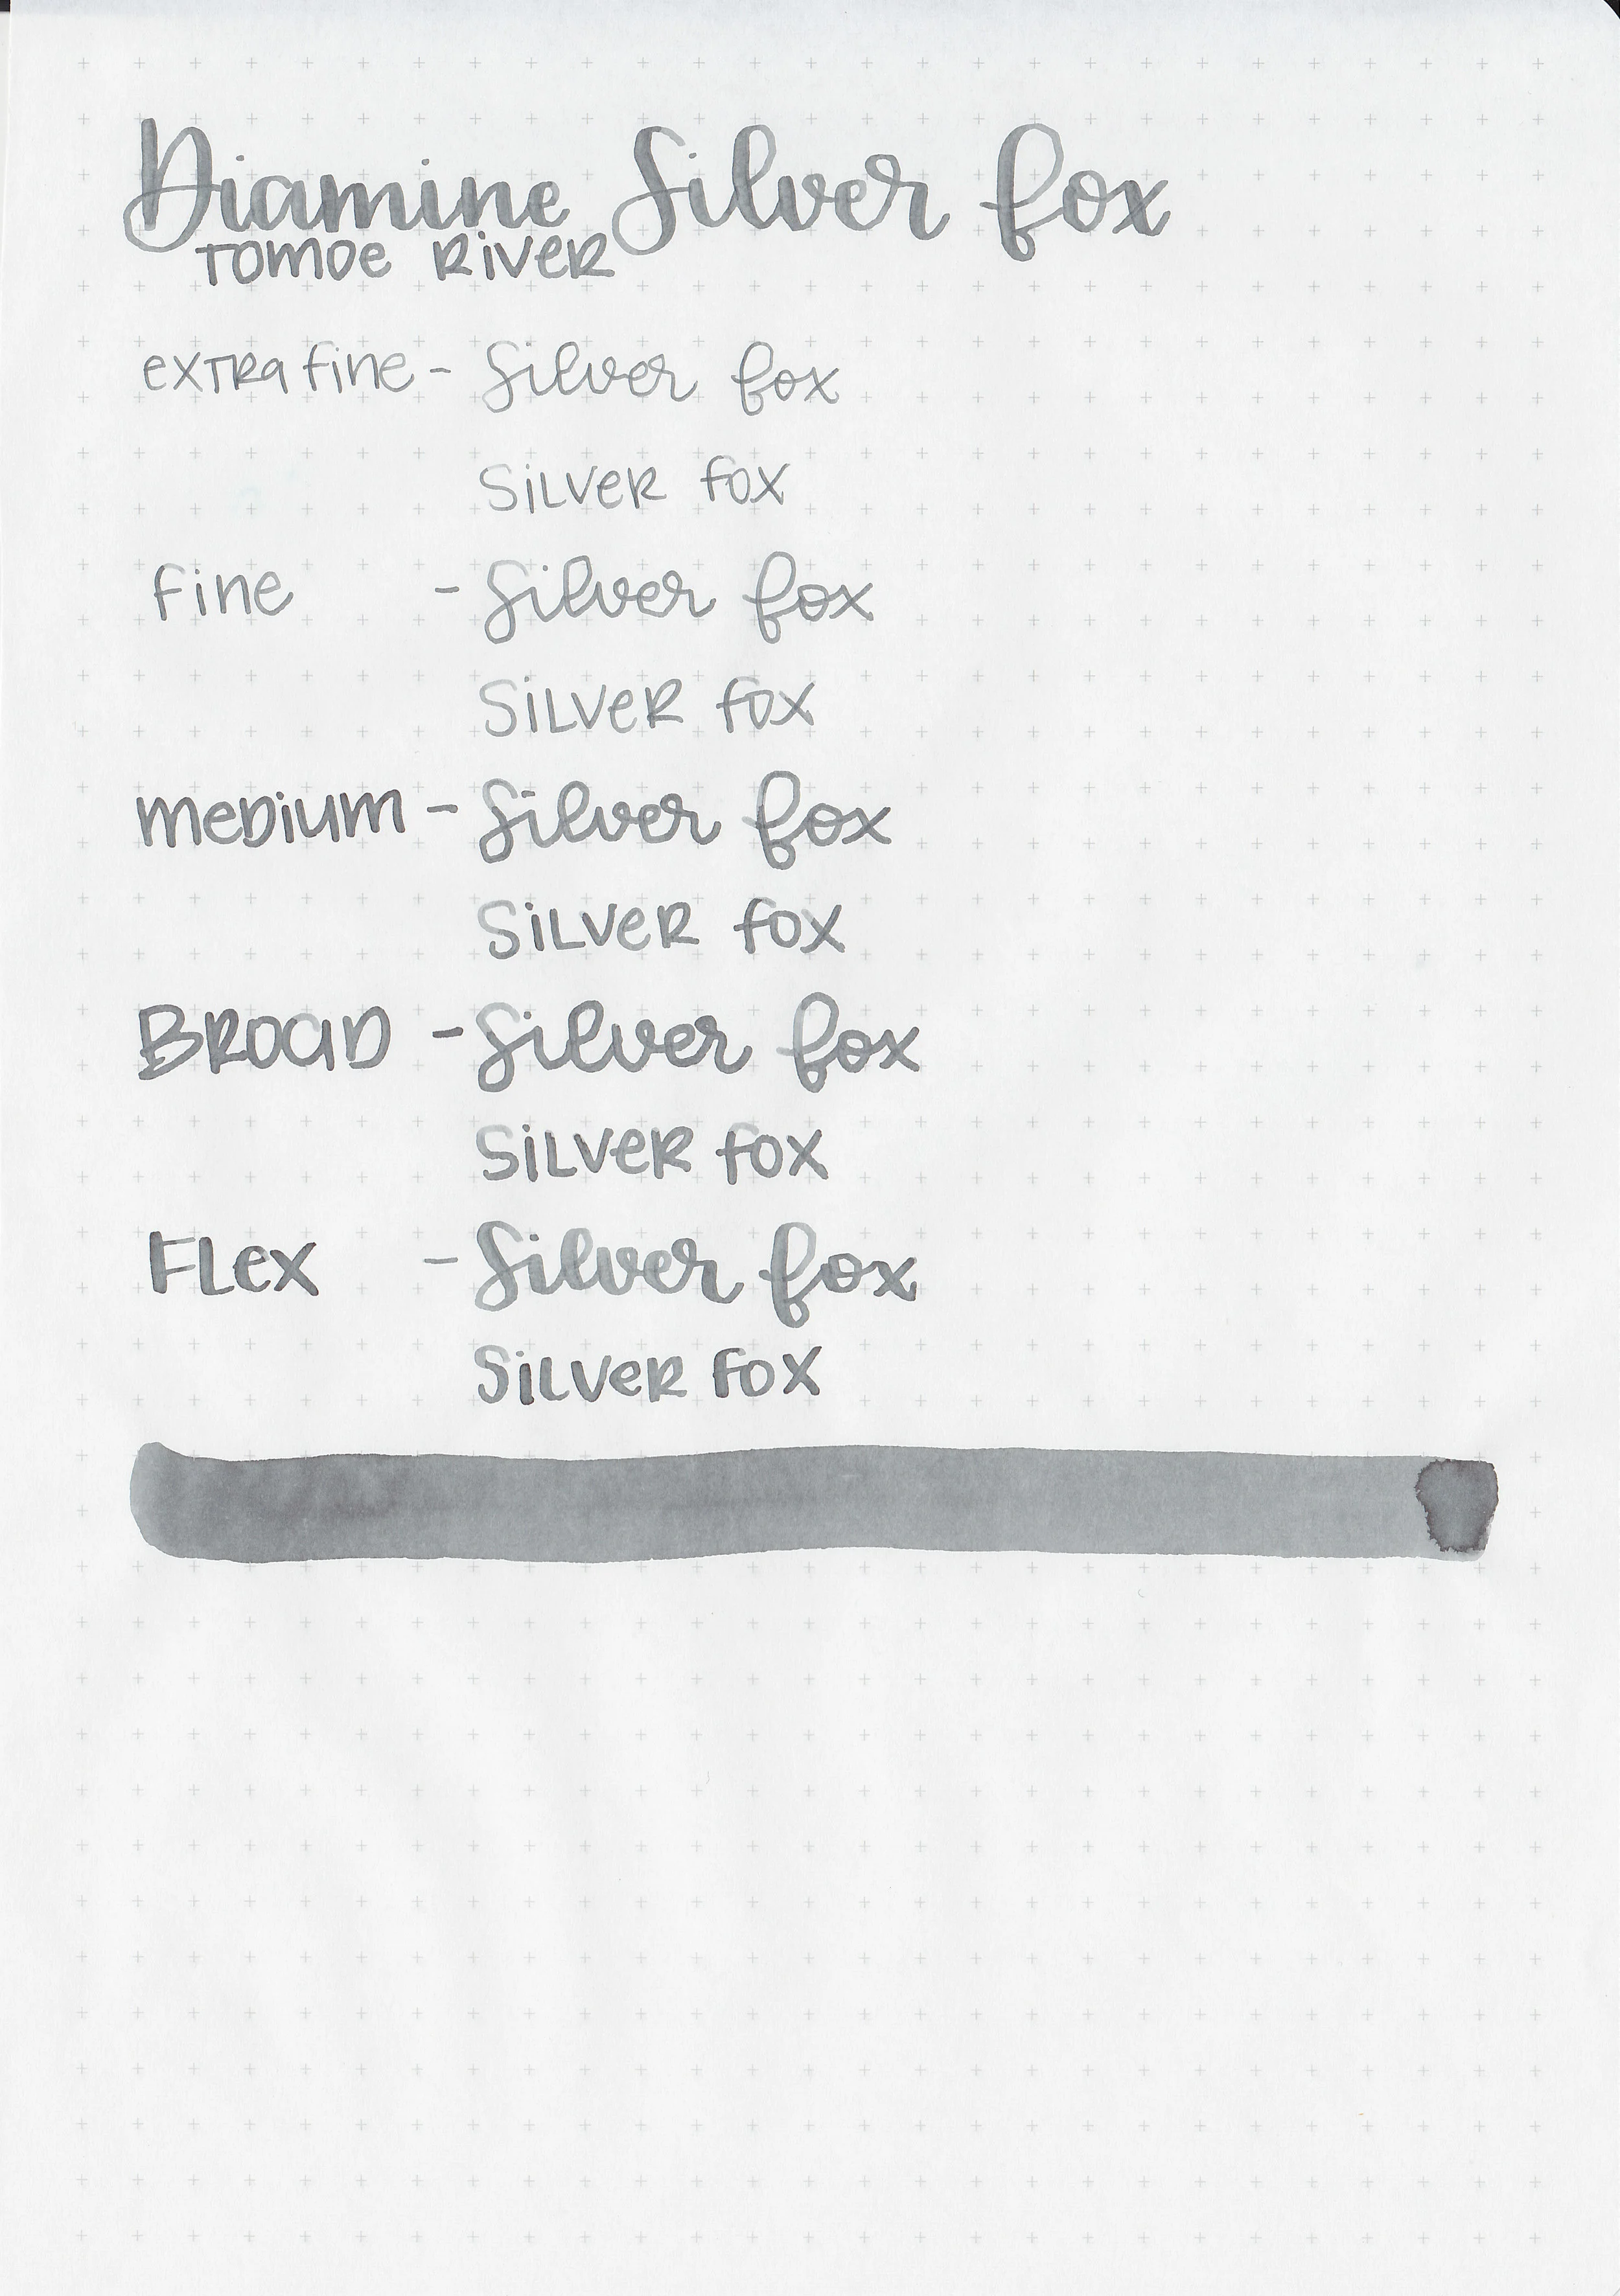 Diamine Silver fox
TOMOE RIVER
extra fine - Silver fox
SILVER fox
fine - Silver fox
SILVER fox
medium - Silver fox
SILVER fox
BROAD - Silver fox
SILVER fox
FLex - Silver fox
SILVER FOX